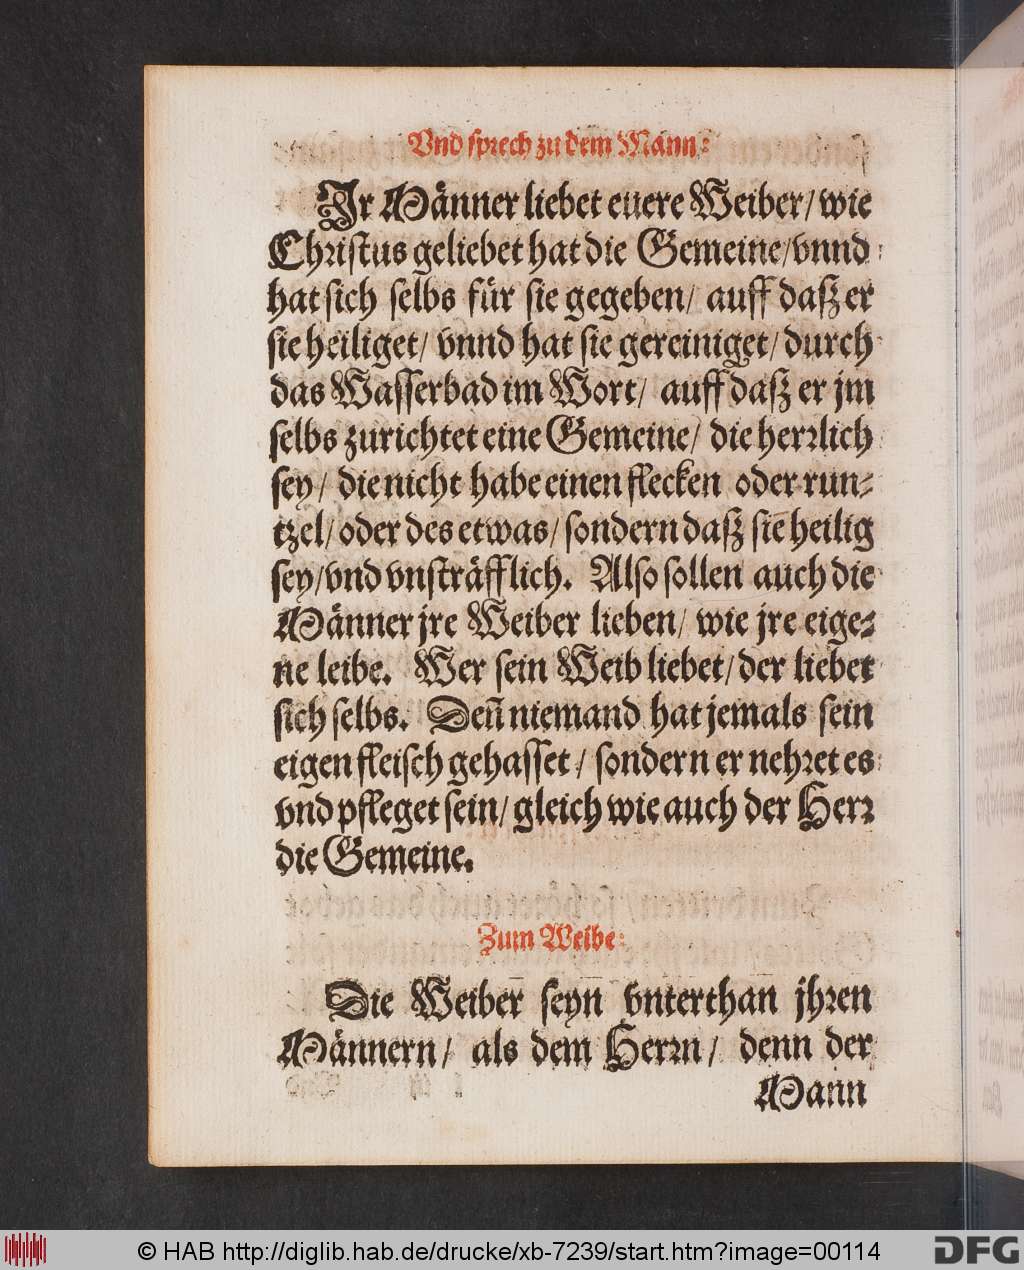 Vnd sprech zu dem Mann:
Jr Männer liebet euere Weiber/ wie
Christus geliebet hat die Gemeine/ vnnd
hat sich selbs für sie gegeben/ auff daß er
sie heiliget/ vnnd hat sie gereiniget/ durch
das Wasserbad im Wort/ auff daß er jm
selbs zurichtet eine Gemeine/ die herrlich
sey/ die nicht habe einen flecken oder run-
tzel/ oder des etwas/ sondern daß sie heilig
sey/ vnd vnsträfflich. Also sollen auch die
Männer jre Weiber lieben/ wie jre eige-
ne leibe. Wer sein Weib liebet/ der liebet
sich selbs. Deñ niemand hat jemals sein
eigen fleisch gehasset/ sondern er nehret es
vnd pfleget sein/ gleich wie auch der Herr
die Gemeine.
Zum Weibe:
Die Weiber seyn vnterthan jhren
Männern/ als dem Herrn/ denn der
Mann
© HAB http://diglib.hab.de/drucke/xb-7239/start.htm?image=00114
DFG